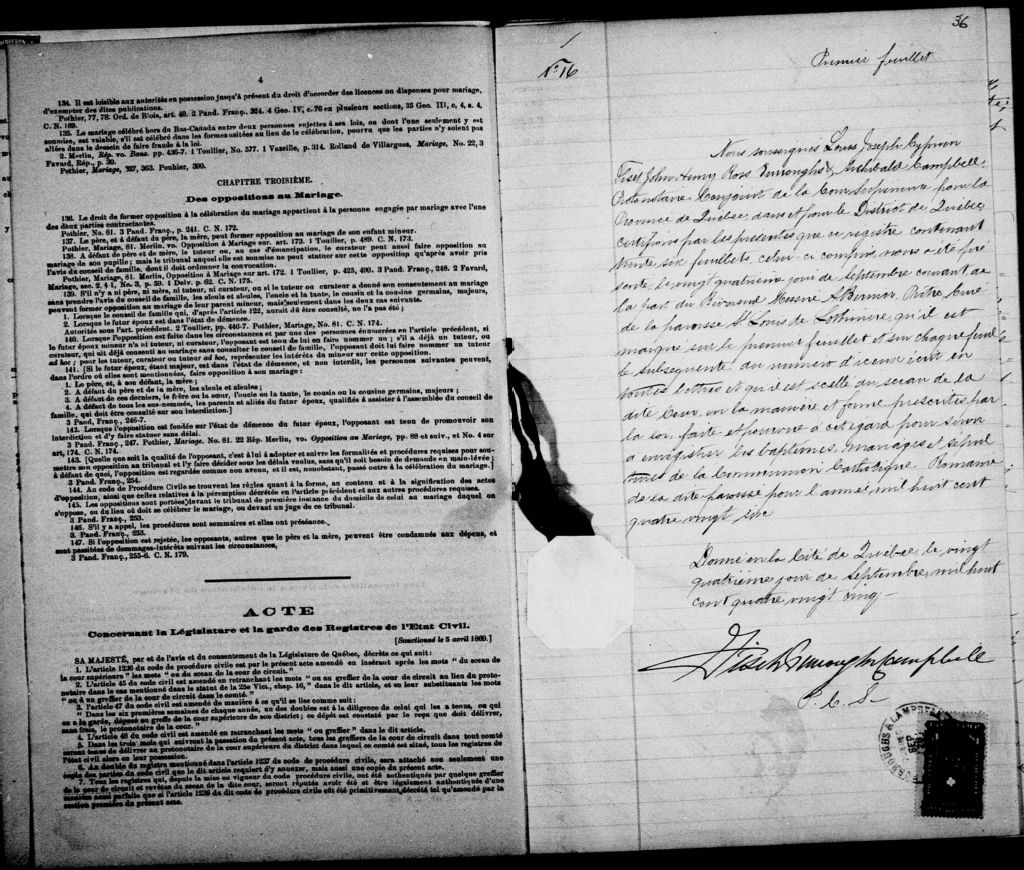 4
134. Il est loisible aux autorités en possession jusqu'à présent du droit d'accorder des licences ou dispenses pour mariage,
d'exempter des dites publications.
Pothier, 77, 78. Ord. de Blois, art. 40. 2 Pand. Franç., 324. 4 Geo. IV, c. 76 en plusieurs sections, 35 Geo. III, c. 4, s. 4,
C. N. 169.
135. Le mariage célébré hors du Bas-Canada entre deux personnes sujettes à ses lois, ou dont l'une seulement y est
soumise, est valable, s'il est célébré dans les formes usitées au lieu de la célébration, pourvu que les parties n'y soient pas
allées dans le dessein de faire fraude à la loi.
2. Merlin, Rép. vo. Bans. pp. 436-7. 1 Toullier, No. 577. 1 Vazeille, p. 314. Rolland de Villargues, Mariage, No. 22, 3
Favard, Rép., p. 30.
Pothier, Mariage, 327, 363. Pouhier, 390.
CHAPITRE TROISIÈME.
Des oppositions au Mariage.
136. Le droit de former opposition à la célébration du mariage appartient à la personne engagée par mariage avec l'une
des deux parties contractantes.
Pothier, No. 81. 3 Pand. Franç., p. 241. C. N. 172.
137. Le père, et à défaut du père, la mère, peut former opposition au mariage de son enfant mineur.
Pothier, Mariage, 81. Merlin, vo. Opposition à Mariage sur. art. 173. 1 Toullier, p. 489. C. N. 173.
138. A défaut de père et de mère, le tuteur ou, au cas d'émancipation, le curateur peut aussi faire opposition au
mariage de son pupille; mais le tribunal auquel elle est soumise ne peut statuer sur cette opposition qu'après avoir pris
l'avis du conseil de famille, dont il doit ordonner la convocation.
Pothier, Mariage, 81. Merlin, Opposition à Mariage sur art. 172. 1 Toullier, p. 425, 490. 3 Pand. Franç., 248. 2 Favard,
Mariage, sec. 2, § 1, No. 3, p. 59. 1 Delv. p. 62. C. N. 175.
139. S'il n'y a ni père, ni mère, ni tuteur, ni curateur, ou si le tuteur ou curateur a donné son consentement au mariage
sans prendre l'avis du conseil de famille, les aïeuls et aïeules, l'oncle et la tante, le cousin et la cousine germains, majeurs,
peuvent former opposition au mariage de leur parent mineur, mais seulement dans les deux cas suivants.
1. Lorsque le conseil de famille qui, d'après l'article 122, aurait dû être consulté, ne l'a pas été;
2. Lorsque le futur époux est dans l'état de démence.
Autorités sous l'art. précédent. 2 Toullier, pp. 446-7. Pothier, Mariage, No. 81. C. N. 174.
140. Lorsque l'opposition est faite dans les circonstances et par une des personnes énoncées en l'article précédent, si
le futur époux mineur n'a ni tuteur, ni curateur, l'opposant est tenu de lui en faire nommer un; s'il a déjà un tuteur, ou
curateur, qui ait déjà consenti au mariage sans consulter le conseil de famille, l'opposant doit lui faire nommer un tuteur
ad hoc; pour les tuteur, curateur ou tuteur ad hoc, représenter les intérêts du mineur sur cette opposition.
141. [Si le futur époux, étant majeur, est dans l'état de démence, et non interdit, les personnes suivantes peuvent,
dans l'ordre où elles sont mentionnées, faire opposition à son mariage:
1. Le père, et, à son défaut, la mère;
2. A défaut du père et de la mère, les aïeuls et aïeules;
3. A défaut de ces derniers, le frère ou la sœur, l'oncle ou la tante, le cousin ou la cousine germains, majeurs;
4. A défaut de tous les sus-nommés, les parents et alliés du futur époux, qualifiés à assister à l'assemblée du conseil de
famille, qui doit être consulté sur son interdiction.]
3 Pand. Franç., 246-7.
142. Lorsque l'opposition est fondée sur l'état de démence du futur époux, l'opposant est tenu de promouvoir son
interdiction et d'y faire statuer sans délai.
3 Pand. Franç., 247. Pothier, Mariage. No. 81. 22 Rép. Merlin, vo. Opposition au Mariage, pp. 88 et suiv., et No. 4 sur
art. 174. C. N. 174.
143. [Quelle que soit la qualité de l'opposant, c'est à lui à adopter et suivre les formalités et procédures requises pour sou-
mettre son opposition au tribunal et l'y faire décider sous les délais voulus, sans qu'il soit besoin de demande en main-levée;
à défaut de quoi, l'opposition est regardée comme non avenue, et il est, nonobstant, passé outre à la célébration du mariage.]
3 Pand. Franç., 254.
144. Au code de Procédure Civile se trouvent les règles quant à la forme, au contenu et à la signification des actes
d'opposition, ainsi que celles relatives à la péremption décrétée en l'article précédent et aux autres procédures requises.
145. Les oppositions sont portées devant le tribunal de première instance du domicile de celui au mariage duquel on
s'oppose, ou du lieu où doit se célébrer le mariage, ou devant un juge de ce tribunal.
3 Pand. Franç., 253.
146. S'il y a appel, les procédures sont sommaires et elles ont préséance.
3. Pand. Franç., 253.
147. Si l'opposition est rejetée, les opposants, autres que le père et la mère, peuvent être condamnés aux dépens, et
sont passibles de dommages-intérêts suivant les circonstances,
3 Pand. Franç., 255-6. C. N. 179.
ACTE
Concernant la Législature et la garde des Registres de l'Etat Civil.
[Sanctionné le 5 avril 1869.]
SA MAJESTÉ, par et de l'avis et du consentement de la Législature de Québec, décrète ce qui suit:
1. L'article 1236 du code de procédure civile est par le présent acte amendé en insérant après les mots "du sceau de
la cour supérieure" les mots "ou du sceau de la cour de circuit."
2. L'article 45 du code civil est amendé en retranchant les mots "ou au greffier de la cour de circuit au lieu du proto-
notaire dans le cas mentionné dans le statut de la 25e Vict., chap. 16," dans le dit article, et en leur substituant les mots
"ou à un greffier de la cour de circuit dans le comté."
3. l'article 47 du code civil est amendé de manière à ce qu'il se lise comme suit:
"Dans les six premières semaines de chaque année, un des doubles est à la diligence de celui qui les a tenus, ou qui
en a la garde, déposé au greffe de la cour supérieure de son district; ce dépôt est constaté par le reçu que doit délivrer,
sans frais, le protonotaire de la cour."
4. L'article 46 du code civil est amendé en retranchant les mots "ou greffier" dans le dit article.
5. Dans les trois mois qui suivront la passation du présent acte, tous les greffiers de la cour de circuit dans tout comté
seront tenus de délivrer au protonotaire de la cour supérieure du district dans lequel ce comté est situé, tous les registres de
l'état civil alors en leur possession.
6. Au double du registre mentionné dans l'article 1237 du code de procédure civile, sera attaché non seulement une
copie des parties du code civil que le dit article requiert d'y annexer, mais aussi une copie du présent acte.
7. Tous les registres qui, depuis la mise en vigueur du code procédure civile, ont été authentiqués par quelque greffier
de la cour de circuit et revêtus du sceau de la dite cour, seront réputés avoir été et être légalement authentiqués d'une
manière aussi parfaite que si l'article 1236 du dit code de procédure civile eût été primitivement décrété tel qu'amendé par la
section première du présent acte.
36
No 16
Premier feuillet
Nous soussignés Louis Joseph Cyprien
Fiset, John Henry Ross Burroughs & Archibald Campbell,
Protonotaire Conjoint de la Cour Supérieure pour la
Province de Québec, dans et pour le District de Québec
certifions par les présentes que ce registre contenant
trente six feuillets, celui-ci compris, nous a été pré
senté, le vingt quatrième jour de Septembre courant de
la part du Révérend Messire Bernier Prêtre Curé
de la paroisse St Louis de Lotbinière, qu'il est
marqué sur le premier feuillet et sur chaque feuillet
subséquent du numéro d'iceux écrit en
toutes lettres et qu'il est scellé du sceau de la
dite Cour, en la manière et forme prescrites par
la loi, faite et pourvue à cet égard pour servir
à enregistrer les baptêmes, mariages et sépul
tures de la Communion Catholique Romaine
de la dite paroisse pour l'année mil huit cent
quatre vingt six
Donné en la Cité de Québec, le vingt
quatrième jour de Septembre, mil huit
cent quatre vingt cinq—
Fiset Burroughs Campbell
P. C. S—
BURROUGHS & CAMPBELL
SEP